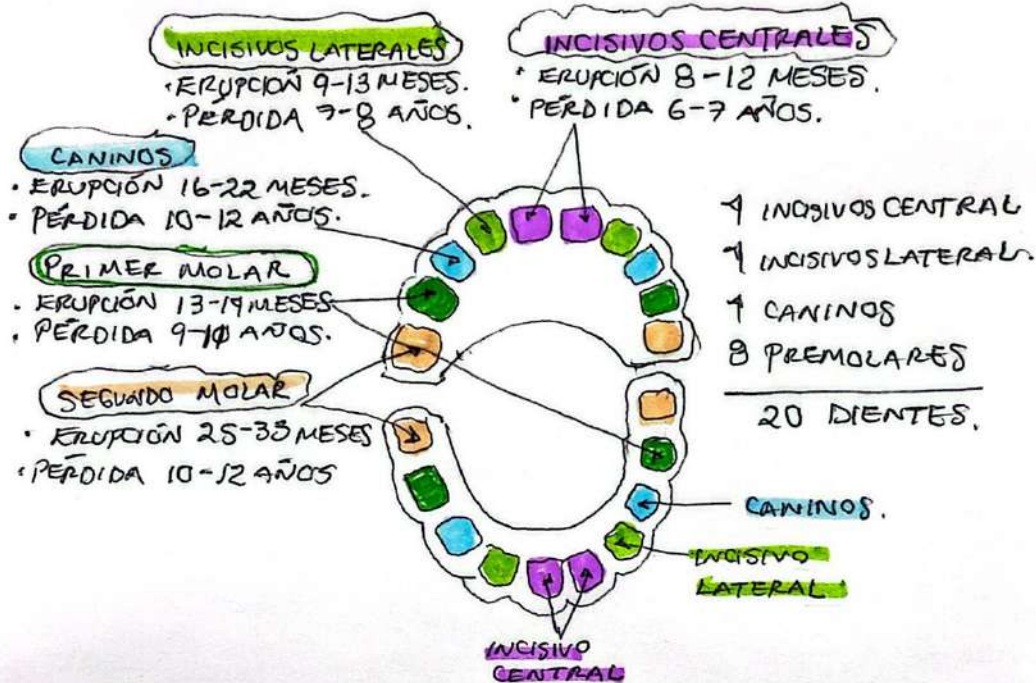 INCISIVOS LATERALES
· ERUPCIÓN 9-13 MESES.
· PÉRDIDA 7-8 AÑOS.
INCISIVOS CENTRALES
· ERUPCIÓN 8-12 MESES.
· PÉRDIDA 6-7 AÑOS.
CANINOS
· ERUPCIÓN 16-22 MESES.
· PÉRDIDA 10-12 AÑOS.
PRIMER MOLAR
· ERUPCIÓN 13-19 MESES
· PÉRDIDA 9-10 AÑOS.
SEGUNDO MOLAR
· ERUPCIÓN 25-33 MESES
· PÉRDIDA 10-12 AÑOS
4 INCISIVOS CENTRAL
4 INCISIVOS LATERAL.
4 CANINOS
8 PREMOLARES
20 DIENTES.
CANINOS.
INCISIVO
LATERAL
INCISIVO
CENTRAL